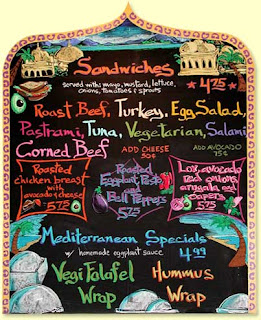 Sandwiches
served with: mayo, mustard, lettuce,
onions, tomatoes & sprouts
* 4.75
Roast Beef, Turkey, Egg Salad,
Pastrami, Tuna, Vegetarian, Salami
Corned Beef
ADD CHEESE
50¢
ADD AVOCADO
75¢
Roasted
chicken breast
with
avocado & cheese
5.75
Roasted
Eggplant, Pesto
and
Bell Peppers
5.75
Lox, avocado
red onions,
arugula and
capers
5.75
Mediterranean Specials
w/ homemade eggplant sauce 4.99
Vegi Falafel
Wrap
Hummus
Wrap